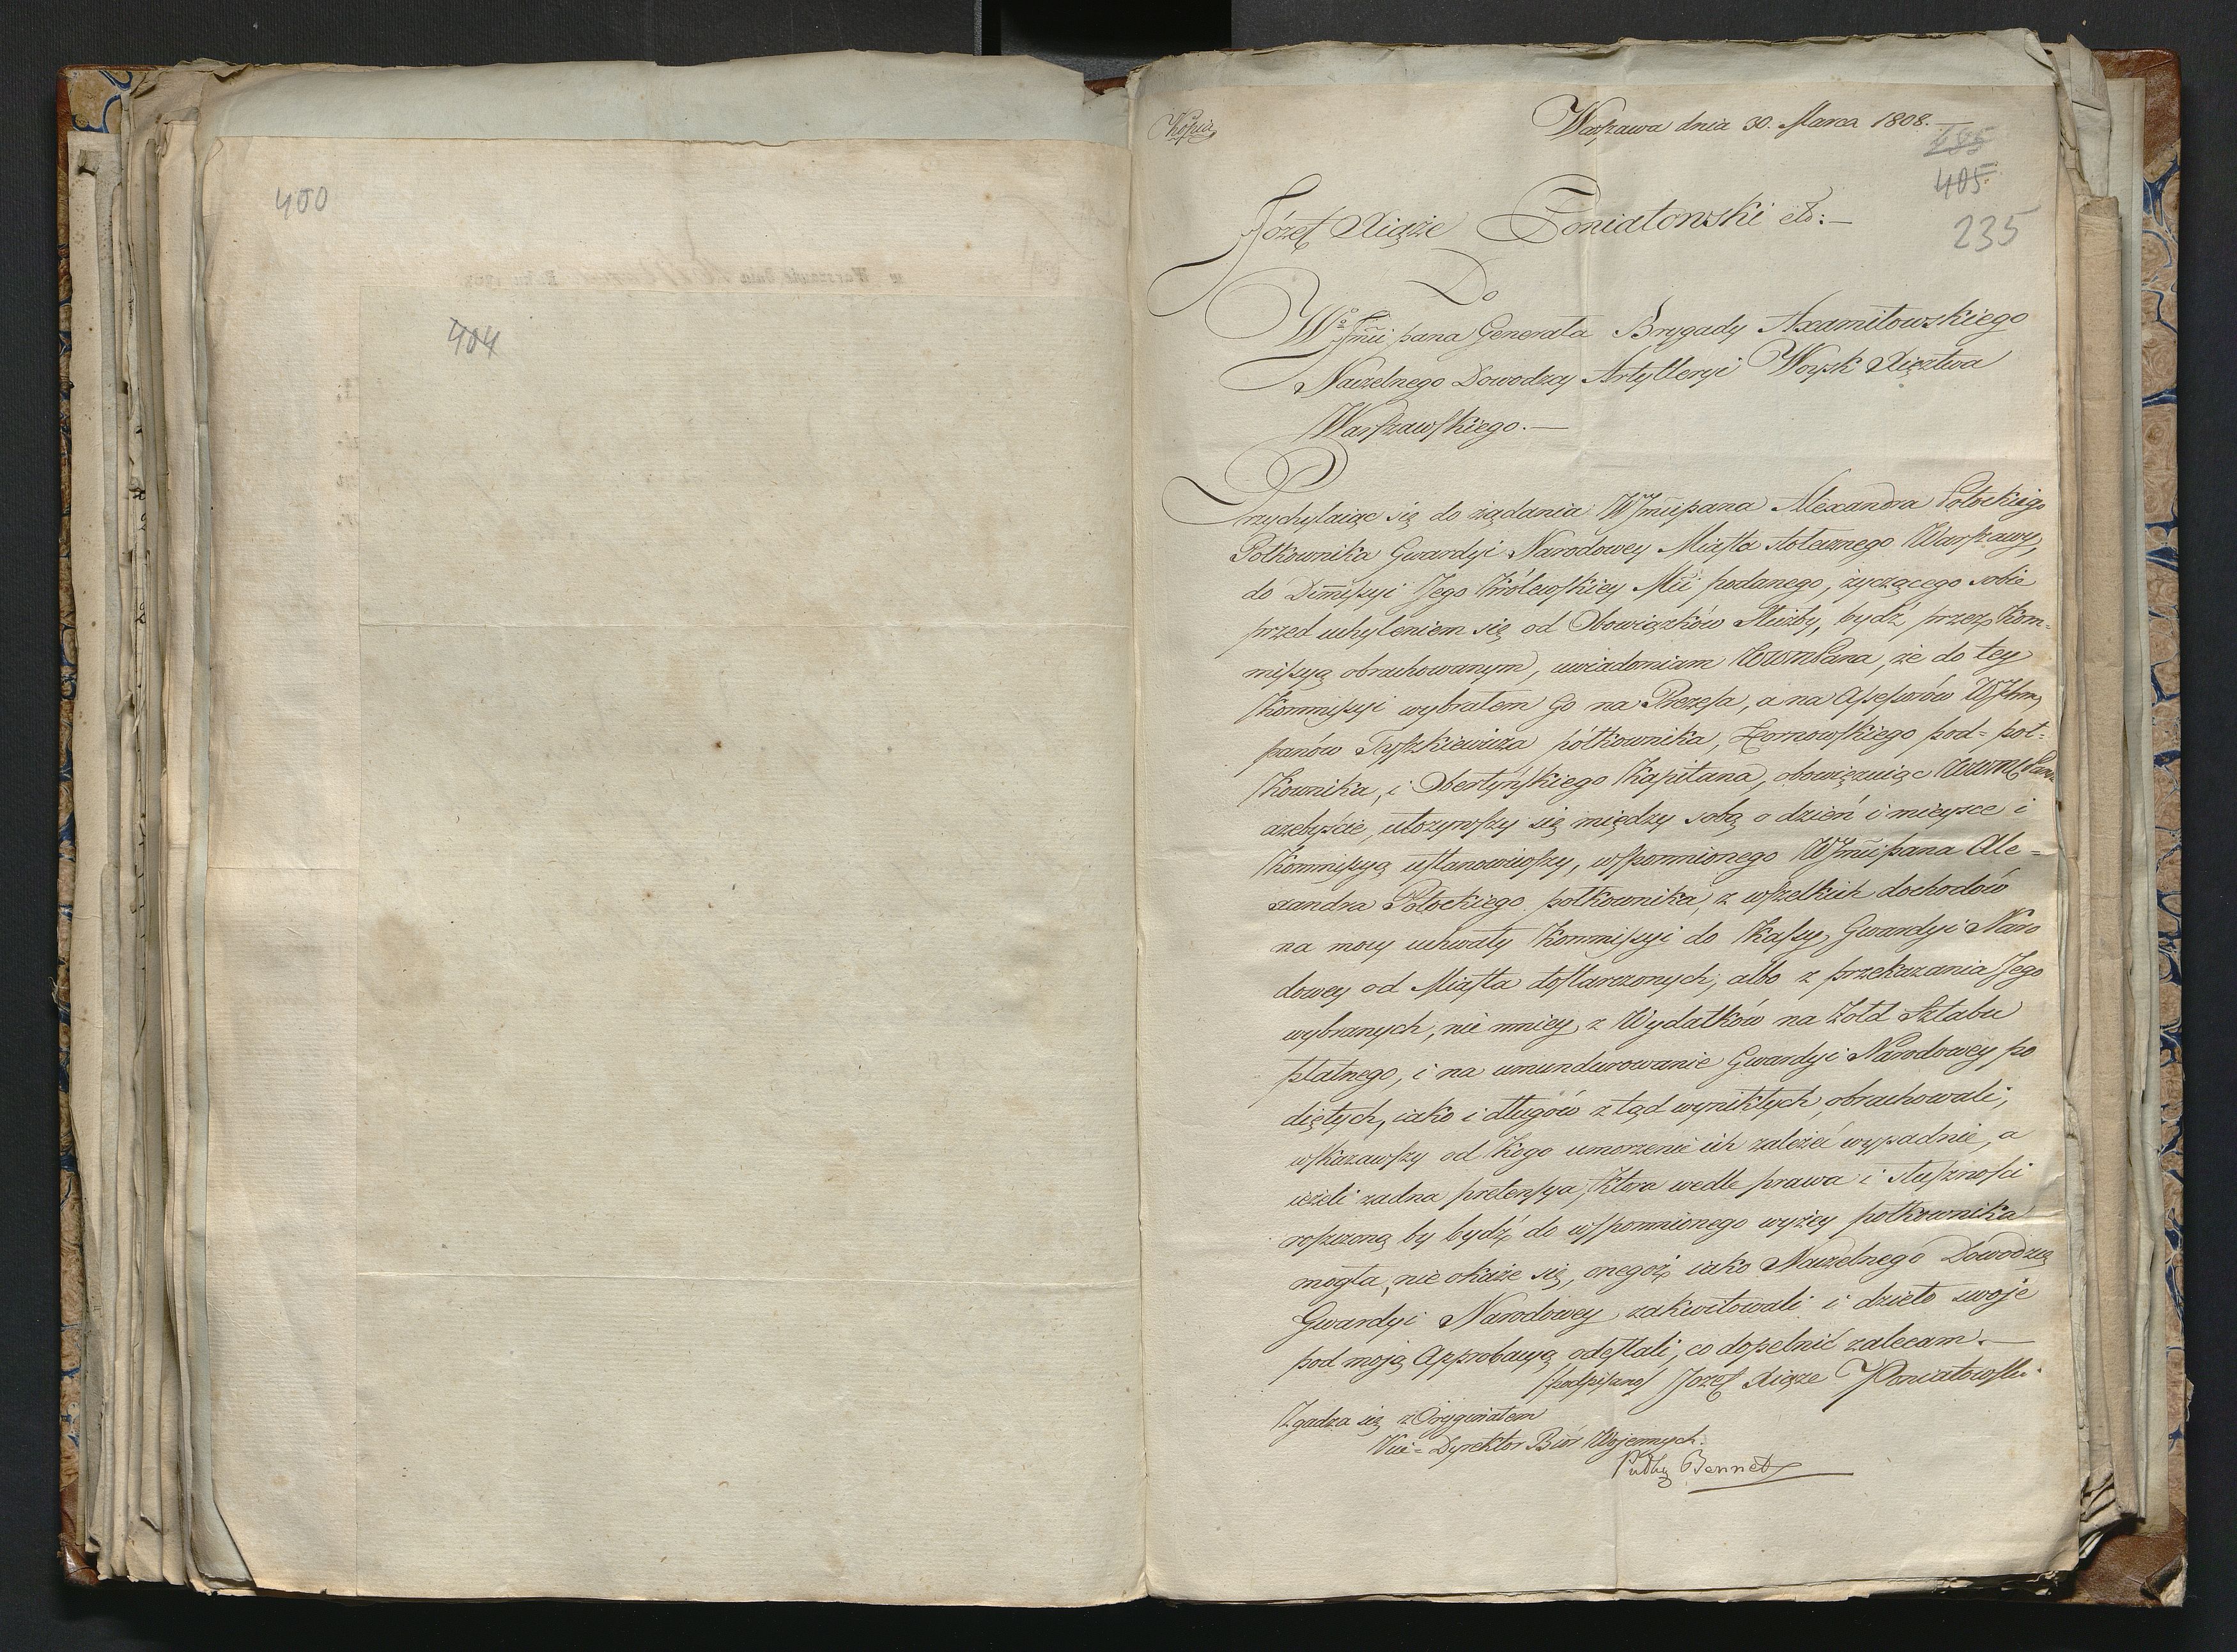 400
404
Kopia
Warszawa dnia 30. Marca 1808.—
405
235
Józef Xiąże Poniatowski etc:—
Do
Wo Jmci pana Generała Brygady Axamitowskiego
Naczelnego Dowodzcy Artylleryi Woysk Xięztwa
Warszawskiego.—
Przychylaiąc się do żądania WJmci pana Alexandra Potockiego
Połkownika Gwardyi Narodowey Miasta stołecznego Warszawy,
do Dimissyi Jego Królewskiey Mci podanego, życzącego sobie
przed uchyleniem się od Obowiązków Służby, bydź przez Kom-
missyą obrachowanym, uwiadomiam WWmPana, że do tey
Kommissyi wybrałem Go na Prezesa, a na Assessorów WJchm
panów Tyszkiewicza półkownika, Hornowskiego pod-poł-
kownika, i Obertyńskiego Kapitana, obowięzuiąc WWm Panów
ażebyście, ułożywszy się między sobą o dzień i mieysce i
Kommissyą ustanowiwszy, wspomnionego WJmci pana Ale-
xandra Potockiego połkownika, z wszelkich dochodów
na mocy uchwały Kommissyi do Kassy Gwardyi Naro
dowey od Miasta dostarczonych, albo z przekazania Jego
wybranych, nie mniey z Wydatków na Żołd Sztabu
płatnego, i na umundurowanie Gwardyi Narodowey po
diętych, iako i długów ztąd wynikłych obrachowali,
wskazawszy od kogo umorzenie ich zależeć wypadnie, a
ieżeli żadna pretensya, która wedle prawa i słuszności
roszczoną by bydź do wspomnionego wyżey połkownika
mogła, nie okaże się, onegoż iako Naczelnego Dowodzcę
Gwardyi Narodowey zakwitowali i dzieło swoje
pod moją Approbacyą odesłali, co dopełnić zalecam.—
/podpisano/ Józef Xiąże Poniatowski.
Zgadza się z Oryginałem
Vice-Dyrektor Biór Wojennych.
Bennet